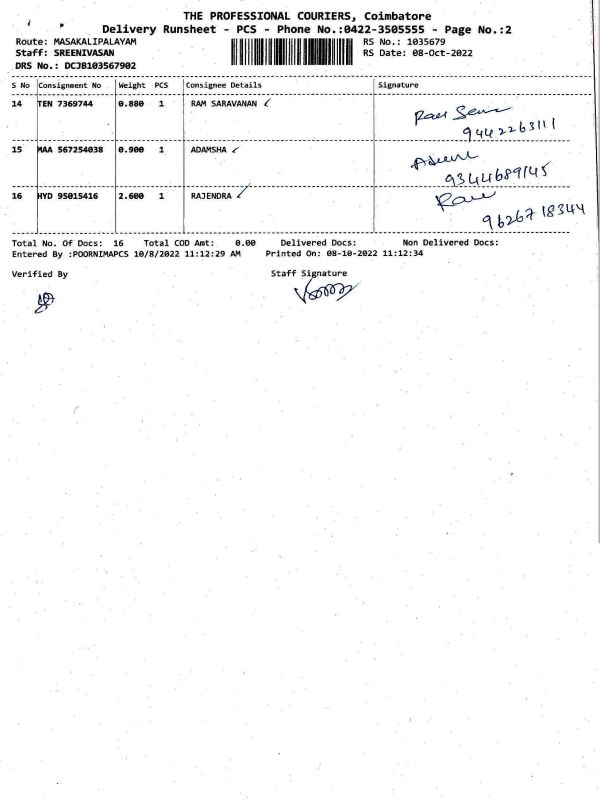 THE PROFESSIONAL COURIERS, Coimbatore
Delivery Runsheet - PCS - Phone No.:0422-3505555 - Page No.:2
Route: MASAKALIPALAYAM RS No.: 1035679
Staff: SREENIVASAN RS Date: 08-Oct-2022
DRS No.: DCJB103567902
S No Consignment No Weight PCS Consignee Details Signature
14 TEN 7369744 0.880 1 RAM SARAVANAN
9442263111
15 MAA 567254038 0.900 1 ADAMSHA
9344689145
16 HYD 95015416 2.600 1 RAJENDRA
9626718344
Total No. Of Docs: 16 Total COD Amt: 0.00 Delivered Docs: Non Delivered Docs:
Entered By :POORNIMAPCS 10/8/2022 11:12:29 AM Printed On: 08-10-2022 11:12:34
Verified By Staff Signature